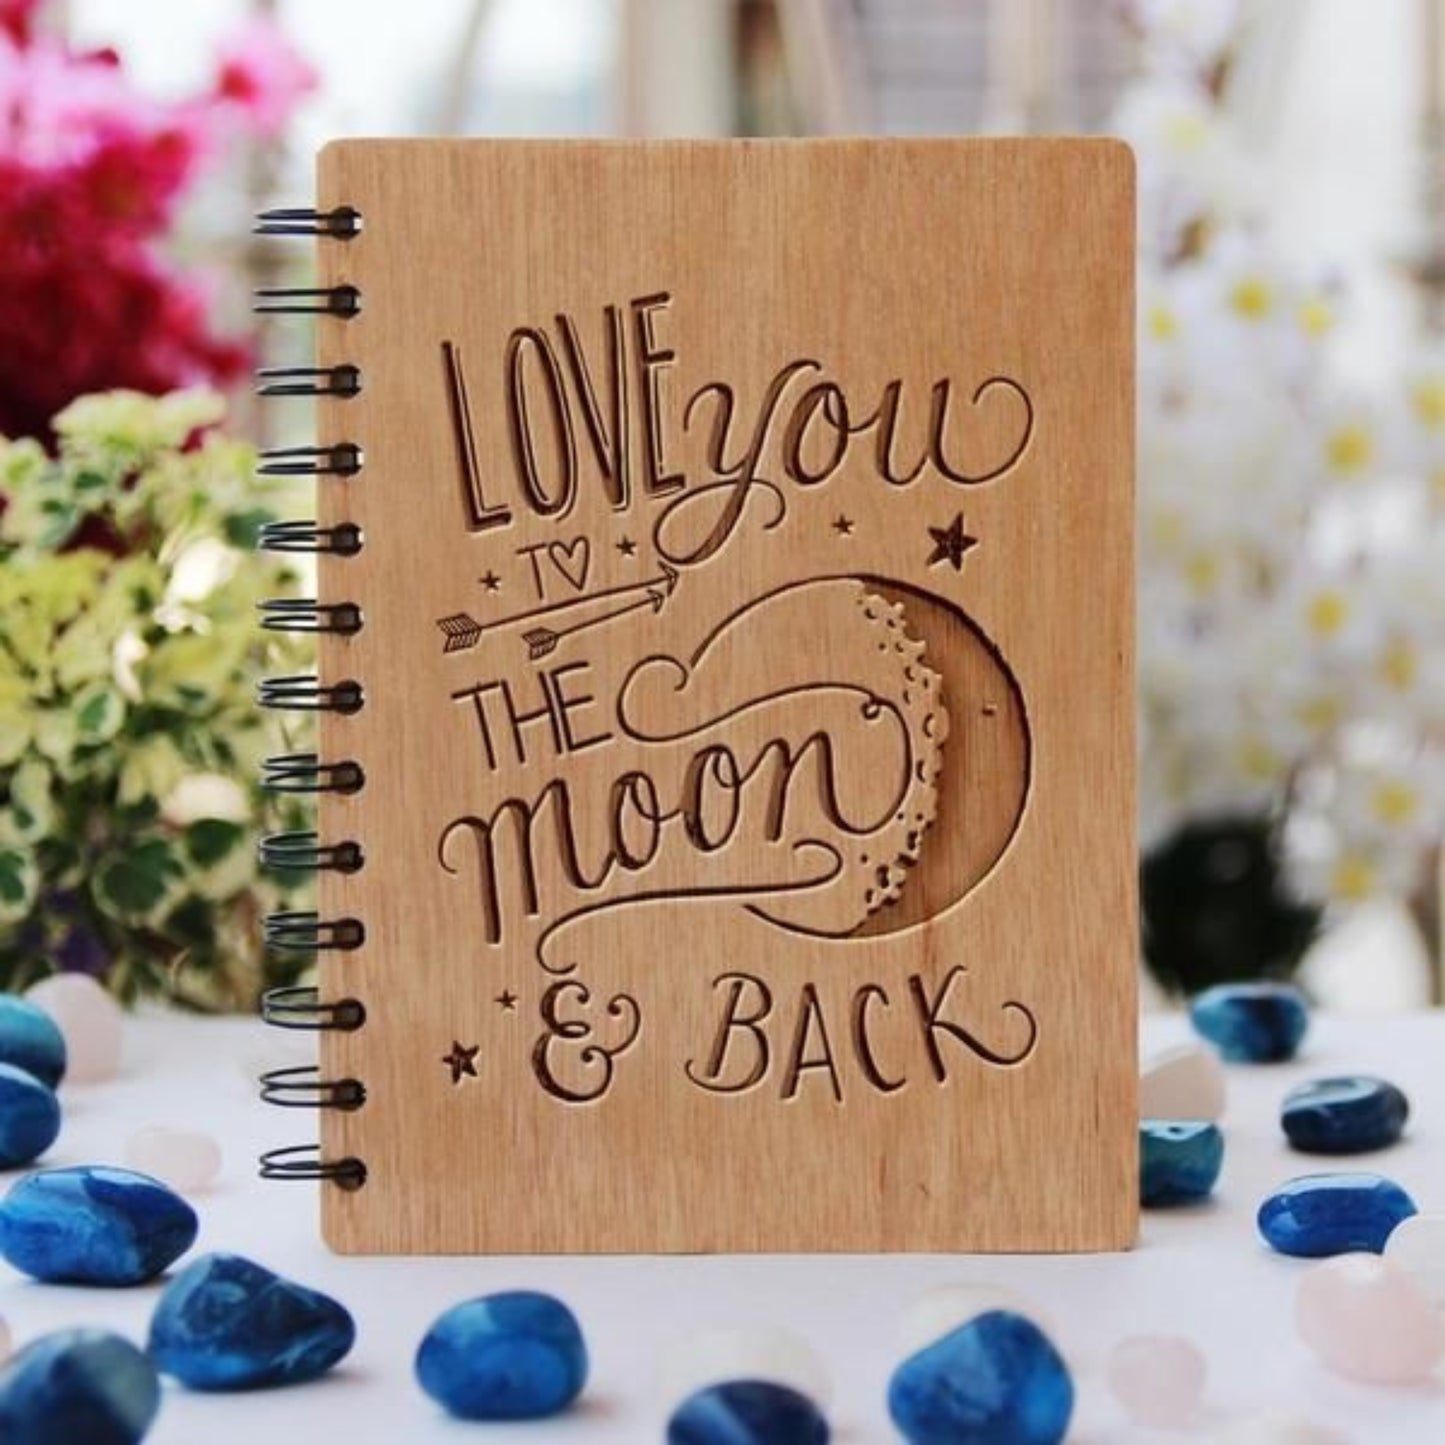 LOVE you
TO
THE
moon
& BACK